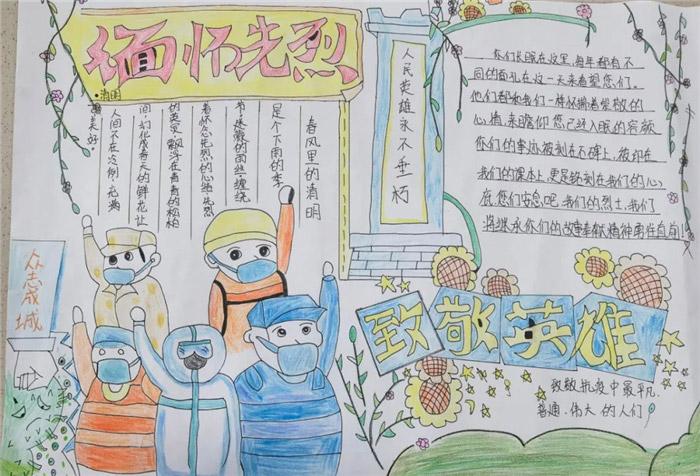 缅怀先烈
•清明
春风里的清明
是个下雨的季
节,迷濛的雨丝,缠绕
着怀念先烈的心绪,先烈
的英灵,飘浮在青青的松柏
间,幻化成春天的鲜花,让
人间不在冷例,充满
美好
人民英雄永不垂朽
你们长眠在这里,每年都有不
同的面孔在这一天来看望您们。
他们都和我们一样怀揣着崇敬的
心情,来瞻仰您已经入眠的容颜
你们的事迹被刻在石碑上,被印在
我们的课本上,更是铭刻在我们的心
底,您们安息吧,我们的烈士,我们
将继承你们的
精神勇往直前!
众志成城
致敬英雄
致敬抗疫中最平凡、
普通、伟大的人们